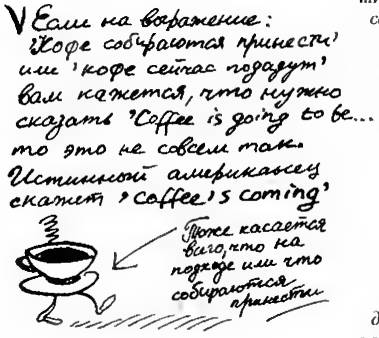 V Если на выражение:
'Кофе собираются принести'
или 'кофе сейчас подадут'
вам кажется, что нужно
сказать 'Coffee is going to be...
то это не совсем так.
Истинный американец
скажет 'Coffee is coming'
Тоже касается
всего, что на
подходе или что
собираются
принести